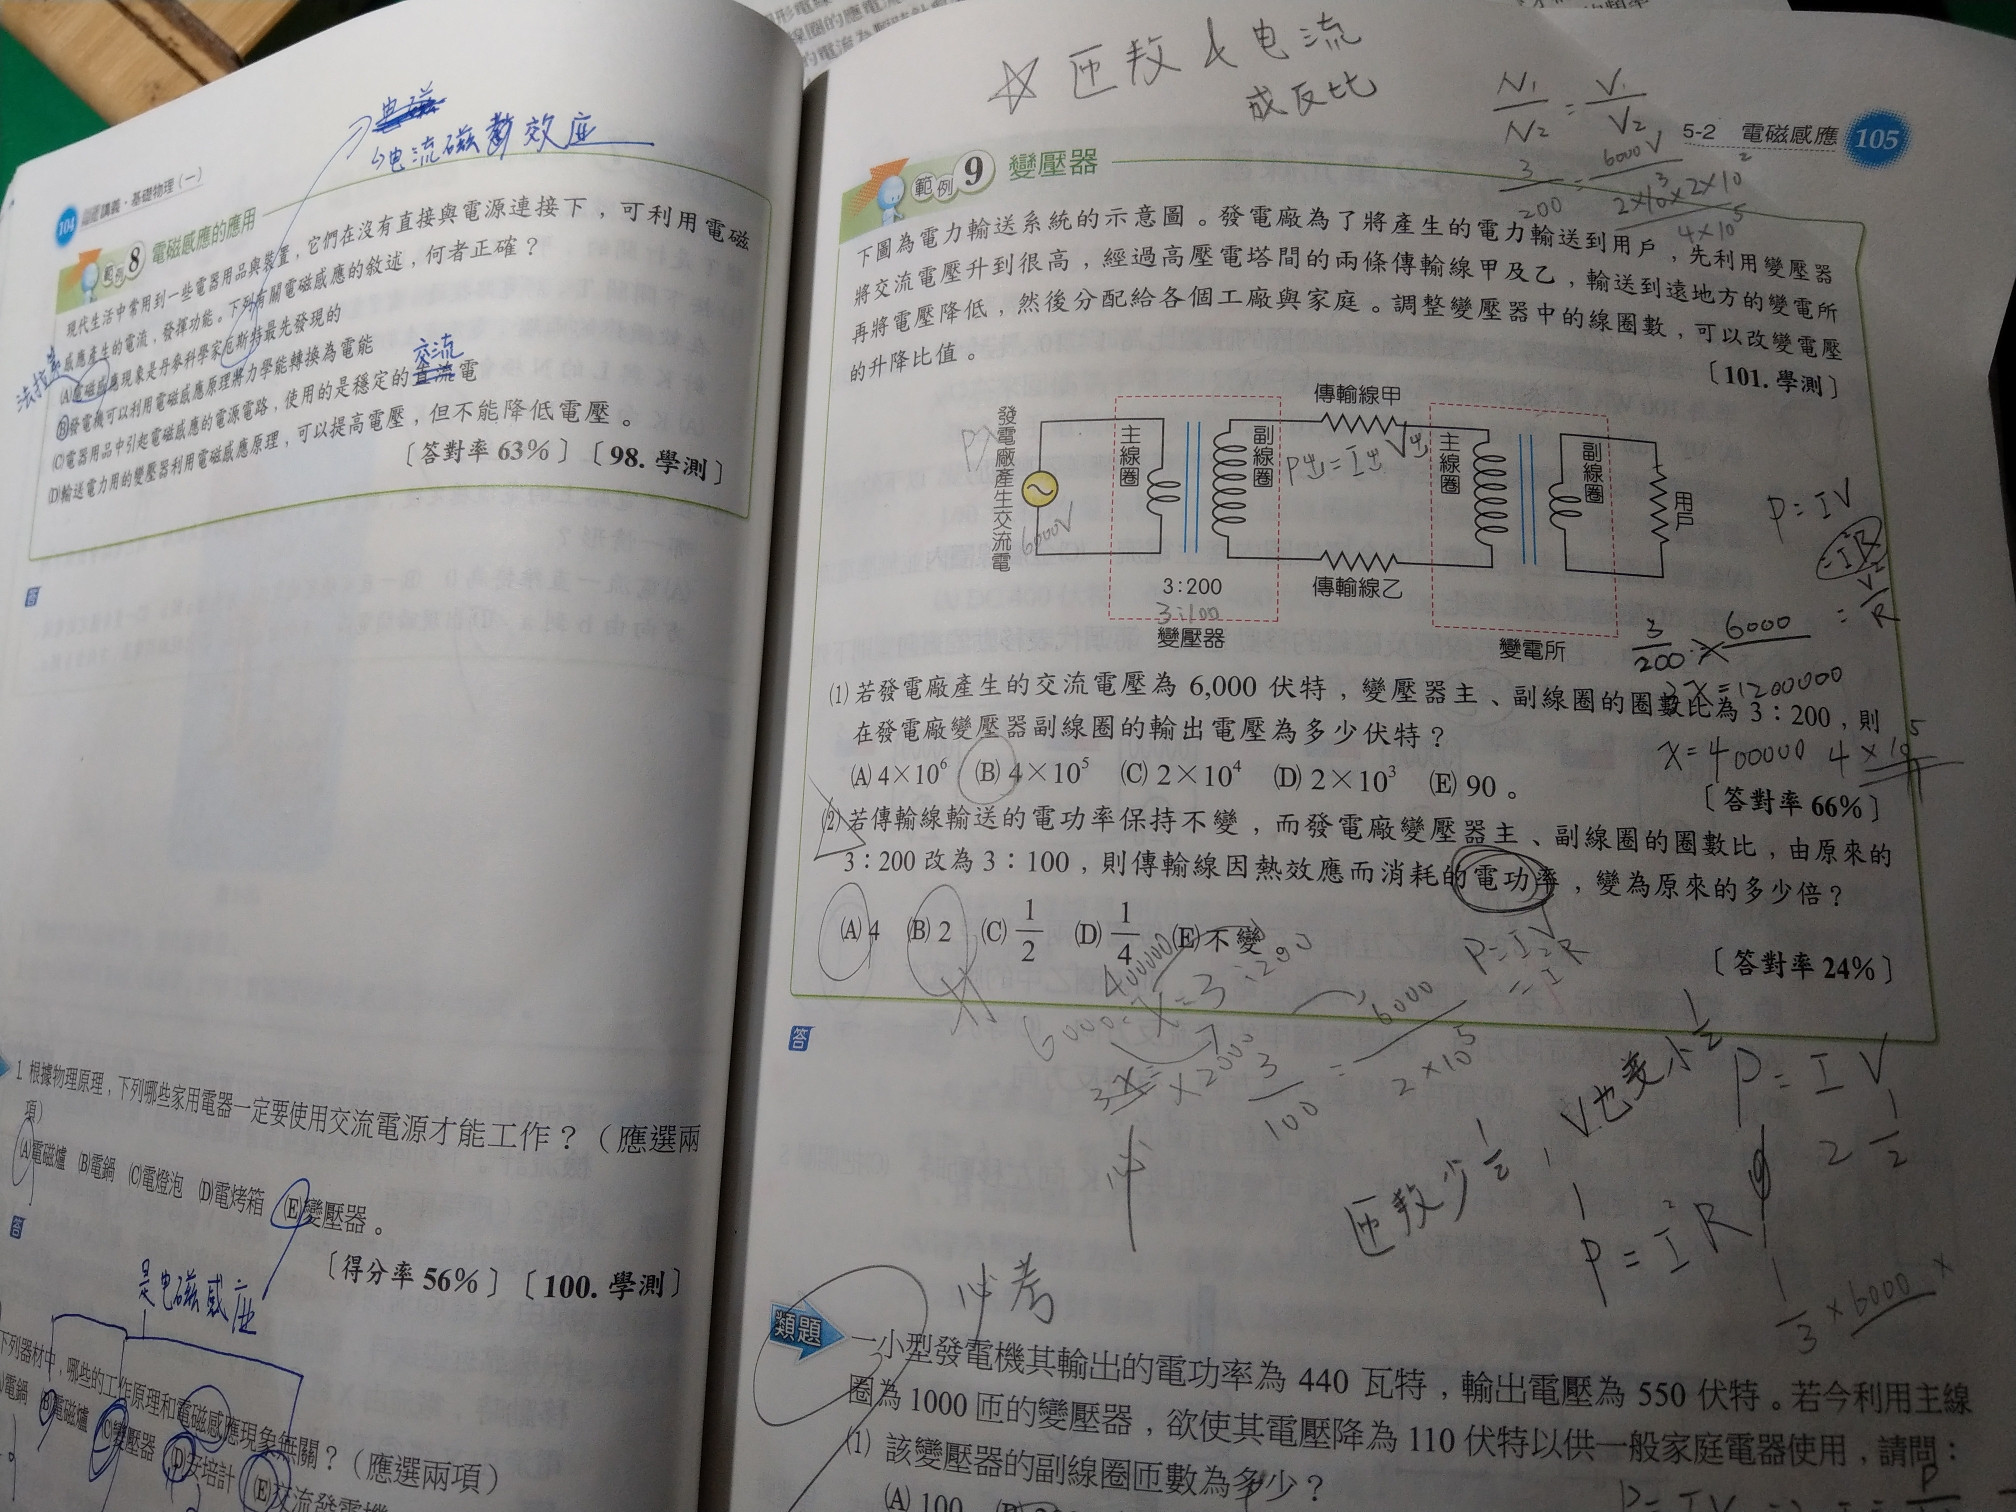 電流磁效應
104 講義‧基礎物理(一)
範例 8 電磁感應的應用
現代生活中常用到一些電器用品與裝置，它們在沒有直接與電源連接下，可利用電磁
感應產生的電流，發揮功能。下列有關電磁感應的敘述，何者正確？
法拉第
(A)電磁感應現象是丹麥科學家厄斯特最先發現的
(B)發電機可以利用電磁感應原理將力學能轉換為電能
交流
(C)電器用品中引起電磁感應的電源電路，使用的是穩定的直流電
(D)輸送電力用的變壓器利用電磁感應原理，可以提高電壓，但不能降低電壓。
〔答對率 63%〕〔98. 學測〕
答
1. 根據物理原理，下列哪些家用電器一定要使用交流電源才能工作？（應選兩
項）
(A)電磁爐 (B)電鍋 (C)電燈泡 (D)電烤箱 (E)變壓器。
〔得分率 56%〕〔100. 學測〕
答
是电磁感应
下列器材中，哪些的工作原理和電磁感應現象無關？（應選兩項）
電鍋 (B)電磁爐 (C)變壓器 (D)安培計 (E)交流發電機
☆ 匝教 & 电流
成反比
N1/N2 = V1/V2
5-2 電磁感應 105
3/200 = 6000V/2×10³×2×10²
4×10⁵
範例 9 變壓器
下圖為電力輸送系統的示意圖。發電廠為了將產生的電力輸送到用戶，先利用變壓器
將交流電壓升到很高，經過高壓電塔間的兩條傳輸線甲及乙，輸送到遠地方的變電所
再將電壓降低，然後分配給各個工廠與家庭。調整變壓器中的線圈數，可以改變電壓
的升降比值。
〔101. 學測〕
發電廠產生交流電
6000V
主線圈
副線圈
傳輸線甲
P出=I出V出
傳輸線乙
主線圈
副線圈
用戶
3:200
3:100
變壓器
變電所
P=IV
=I²R
=V²/R
3/200 = 6000/x
3x=1200000
x=400000 4×10⁵
(1) 若發電廠產生的交流電壓為 6,000 伏特，變壓器主、副線圈的圈數比為 3：200，則
在發電廠變壓器副線圈的輸出電壓為多少伏特？
(A) 4×10⁶ (B) 4×10⁵ (C) 2×10⁴ (D) 2×10³ (E) 90。
〔答對率 66%〕
(2) 若傳輸線輸送的電功率保持不變，而發電廠變壓器主、副線圈的圈數比，由原來的
3：200 改為 3：100，則傳輸線因熱效應而消耗的電功率，變為原來的多少倍？
(A) 4 (B) 2 (C) 1/2 (D) 1/4 (E) 不變
〔答對率 24%〕
P=IV
=I²R
400000
6000:x=3:200
答
3/100 = 6000/2×10⁵
匝教少1/2，V也变小1/2
P=IV
2 1/2
P=I²R
1/3×6000
必考
類題 一小型發電機其輸出的電功率為 440 瓦特，輸出電壓為 550 伏特。若今利用主線
圈為 1000 匝的變壓器，欲使其電壓降為 110 伏特以供一般家庭電器使用，請問：
(1) 該變壓器的副線圈匝數為多少？
(A) 100